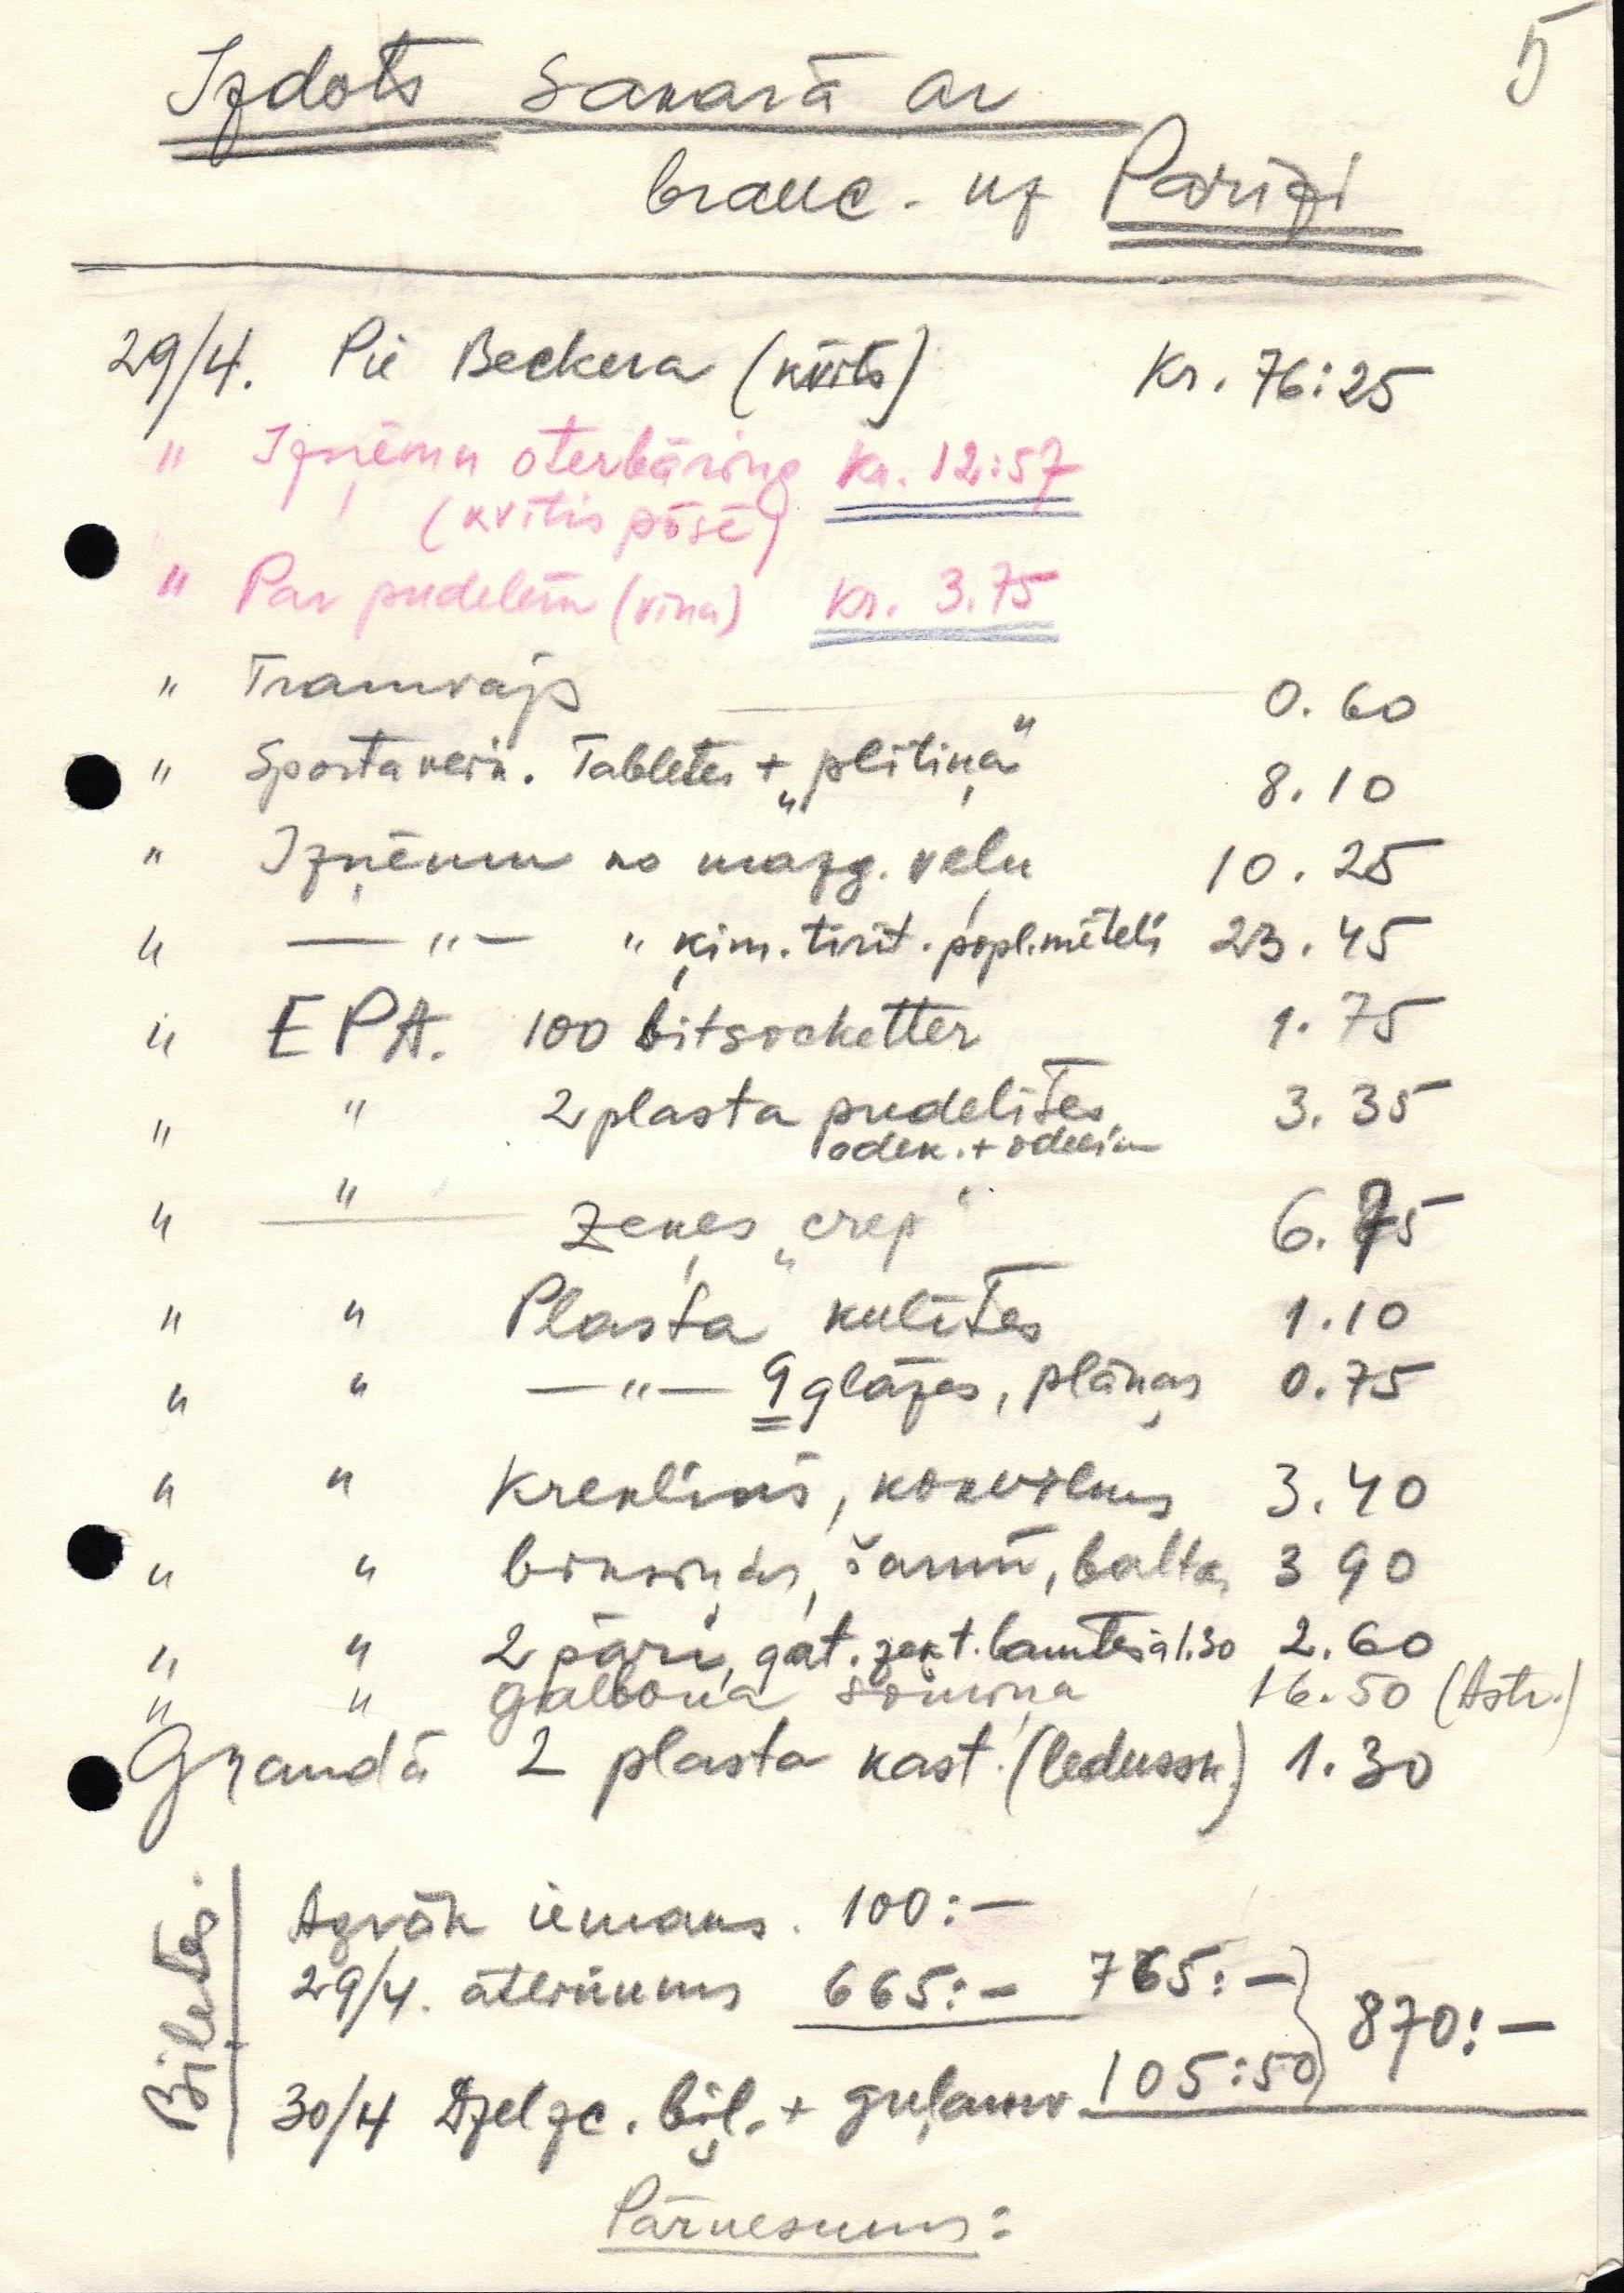 5
Izdots sakarā ar
brauc. uz Parīzi
29/4. Pie Beckera (kvīts) Kr. 76:25
" Izņēmu återbäring Kr. 12:57
(kvītis pōsē)
" Par pudelēm (vīna) Kr. 3.75
" Tramvajs 0.60
" Sporta veik. Tabletes + „plītiņa" 8.10
" Izņēmu no mazg. veļu 10.25
" —"— " ķim. tīrīt. popl. mēteli 23.45
" EPA. 100 bitsocketter 1.75
" " 2 plasta pudelītes 3.35
odek. + odelim
" " Zeķes „crep" 6.75
" " Plasta kulītes 1.10
" " —"— 9 glāzes, plānas 0.75
" " Krekliņš, kokvilnas 3.40
" " biksiņas, šauri, baltas 3 90
" " 2 pāri gat. zext. lamtes à 1.30 2.60
" " galdoņa somiņa 16.50 (Astr.)
Grandā 2 plasta kast. (ledussk.) 1.30
Biļetes.
Agrāk iemaks. 100:—
29/4. atlikums 665:— 765:—
870:—
30/4 Dzelzc. biļ. + guļamv. 105:50
Pārnesums: